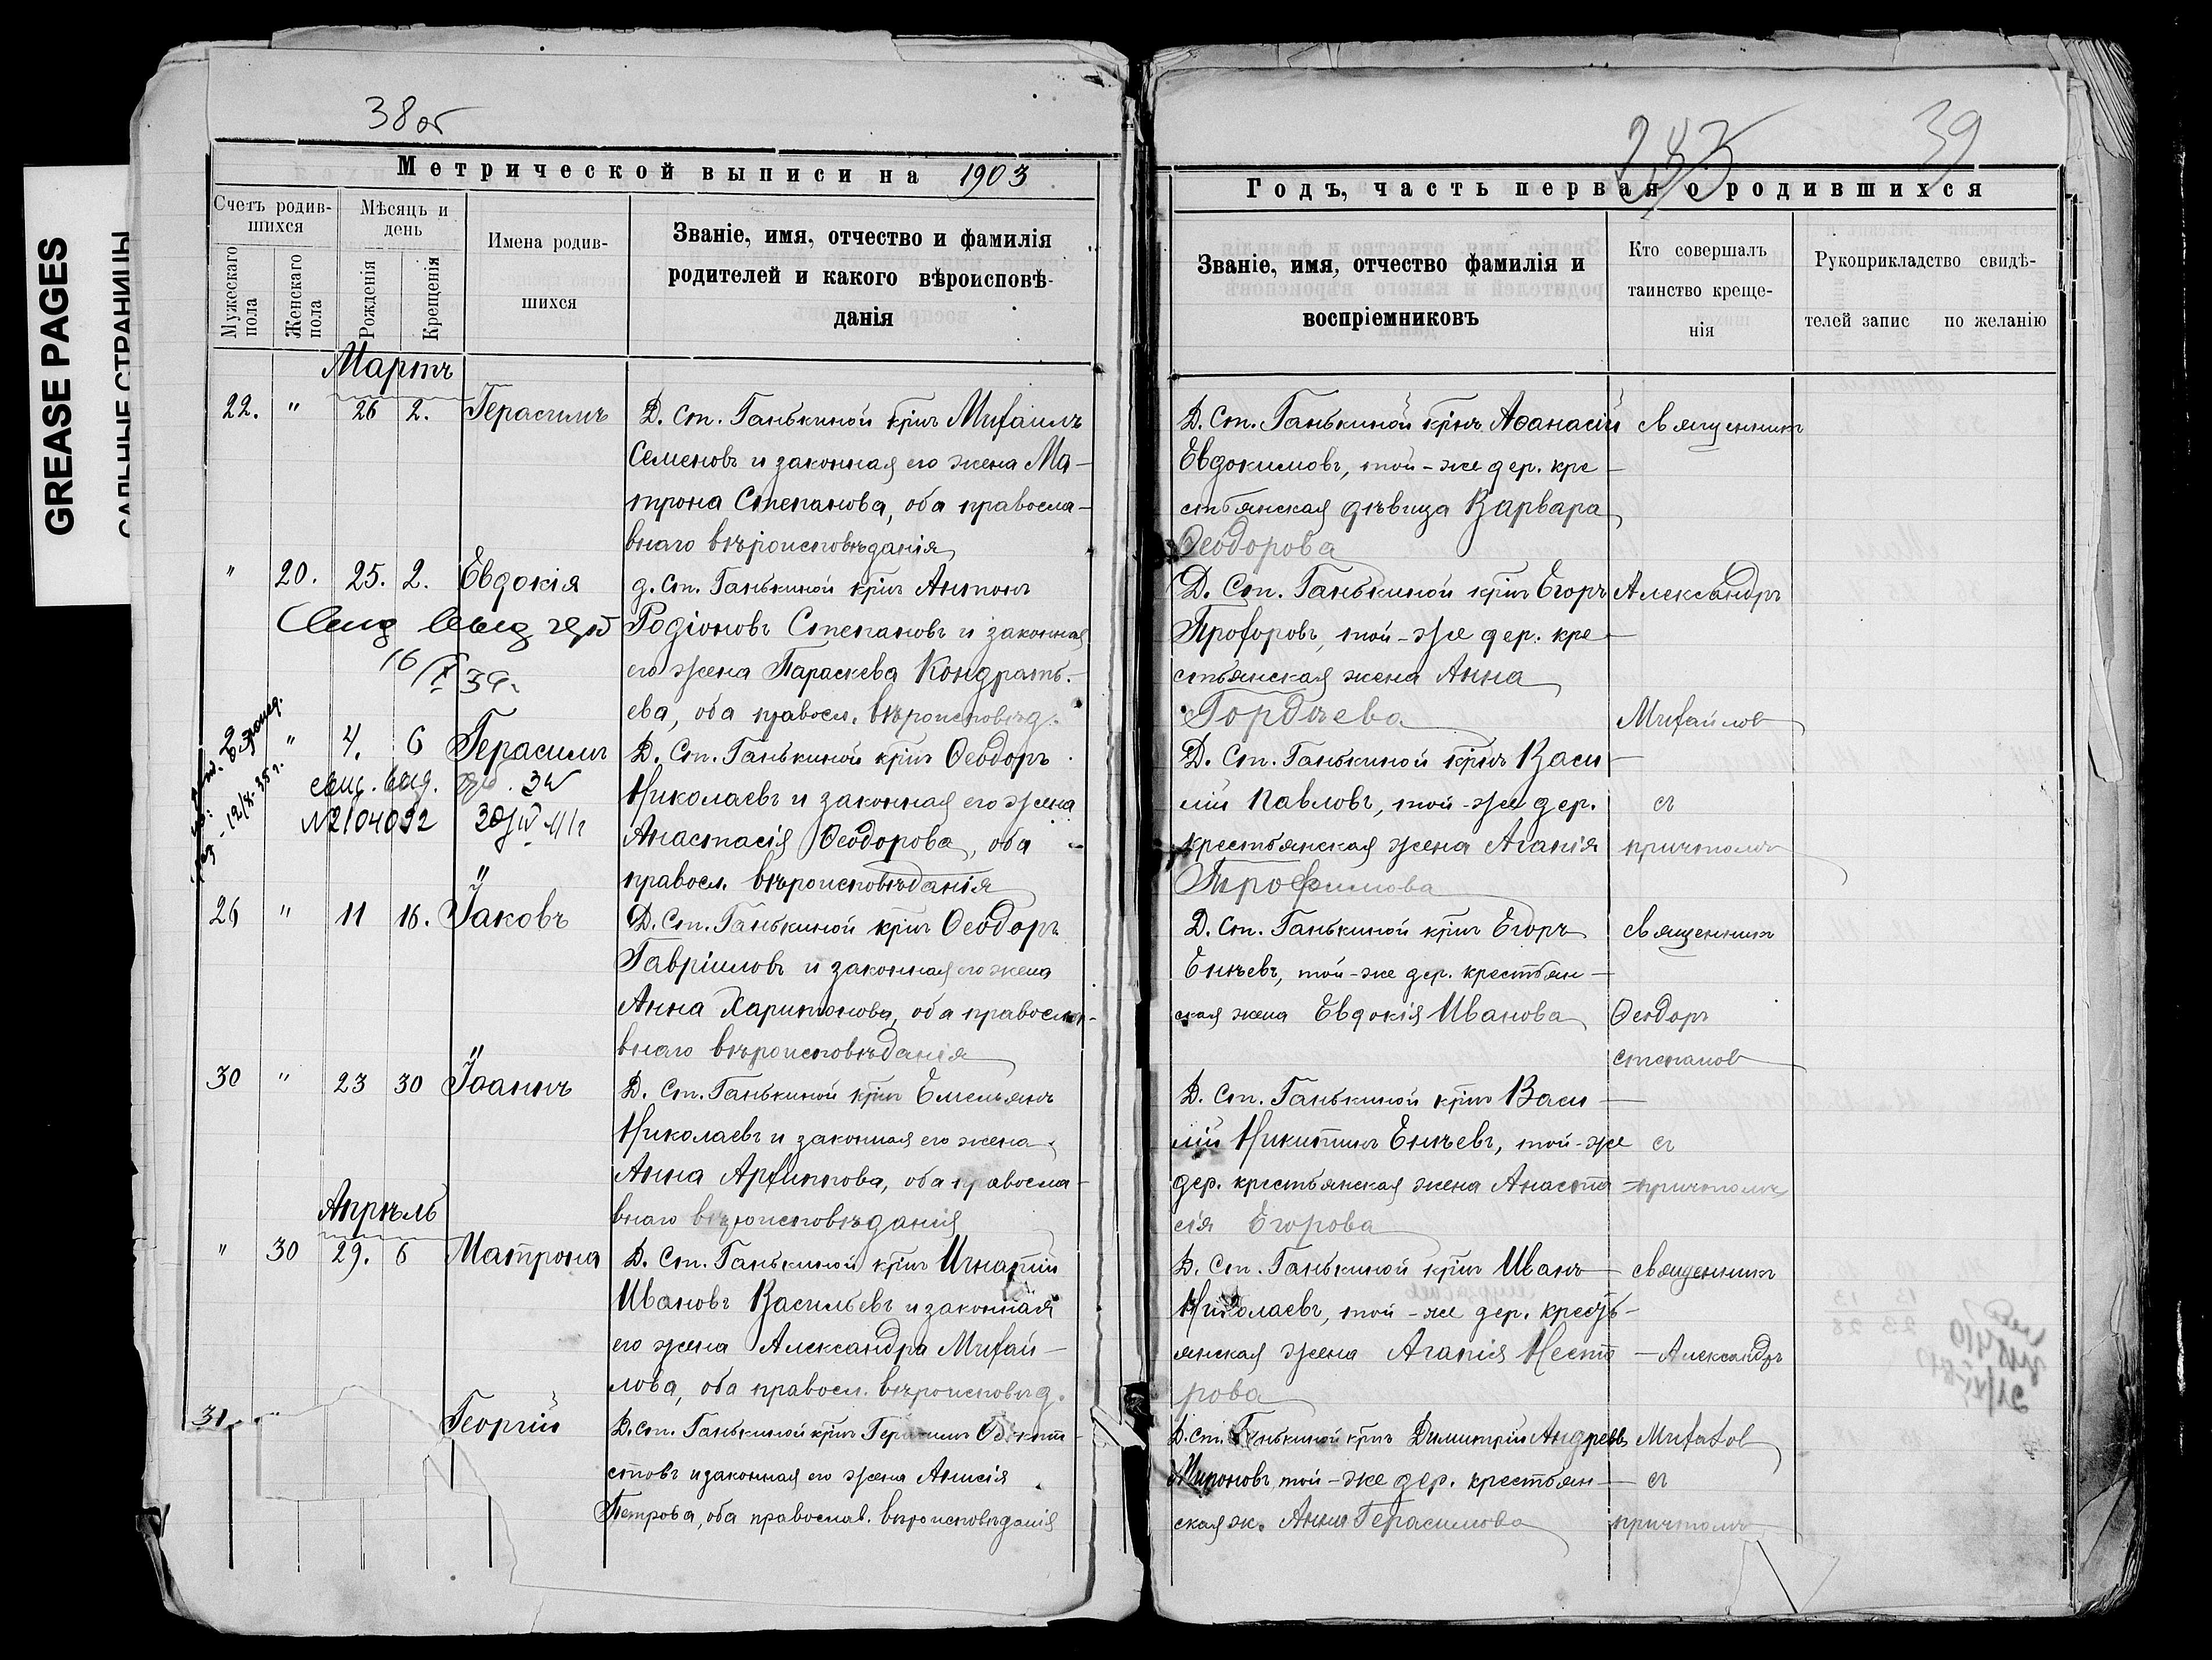 GREASE PAGES
САЛЬНЫЕ СТРАНИЦЫ
38 об
Метрической выписи на 1903
Счетъ родив-
шихся
Мѣсяцъ и
день
Имена родив-
шихся
Званіе, имя, отчество и фамилія
родителей и какого вѣроисповѣ-
данія
Мужескаго
пола
Женскаго
пола
Рожденія
Крещенія
Мартъ
22. " 26 2. Герасимъ Д. Ст. Ганькиной кр͞нъ Михаилъ
Семеновъ и законная его жена Ма-
трона Степанова, оба правосла-
внаго вѣроисповѣданія
" 20. 25. 2. Евдокія д. Ст. Ганькиной кр͞нъ Антонъ
Родіоновъ Степановъ и законная
его жена Параскева Кондрать-
16/I 39г.
ева, оба правосл. вѣроисповѣд.
" 4. 6 Герасимъ Д. Ст. Ганькиной кр͞нъ Ѳеодоръ
Николаевъ и законная его жена
№2104092
Анастасія Ѳеодорова, оба
правосл. вѣроисповѣданія
26 " 11 16. Іаковъ Д. Ст. Ганькиной кр͞нъ Ѳеодоръ
Гавріиловъ и законная его жена
Анна Харитонова, оба правосла-
внаго вѣроисповѣданія
30 " 23 30 Іоаннъ Д. Ст. Ганькиной кр͞нъ Емельянъ
Николаевъ и законная его жена
Анна Архиппова, оба правосла-
внаго вѣроисповѣданія
Апрѣль
" 30 29. 6 Матрона Д. Ст. Ганькиной кр͞нъ Игнатій
Ивановъ Васильевъ и законная
его жена Александра Михай-
лова, оба правосл. вѣроисповѣд.
31 " Георгій Д. Ст. Ганькиной кр͞нъ Герасимъ
стовъ и законная его жена Анисія
Петрова, оба православ. вѣроисповѣданія
39
Годъ, часть первая о родившихся
Званіе, имя, отчество фамилія и
воспріемниковъ
Кто совершалъ
таинство креще-
нія
Рукоприкладство свидѣ-
телей запис по желанію
Д. Ст. Ганькиной кр͞нъ Аѳанасій священникъ
Евдокимовъ, той-же дер. кре-
стьянская дѣвица Варвара
Ѳеодорова
Д. Ст. Ганькиной кр͞нъ Егоръ Александръ
Прохоровъ, той-же дер. кре-
стьянская жена Анна
Гордѣева Михайлов
Д. Ст. Ганькиной кр͞нъ Васи-
лій Павловъ, той-же дер. съ
крестьянская жена Агапія причтомъ
Трофимова
Д. Ст. Ганькиной кр͞нъ Егоръ священникъ
Енѣевъ, той-же дер. крестьян-
ская жена Евдокія Иванова Ѳеодоръ
Степанов
Д. Ст. Ганькиной кр͞нъ Васи-
лій Никитинъ Енѣевъ, той-же съ
дер. крестьянская жена Анаста- причтомъ
сія Егорова
Д. Ст. Ганькиной кр͞нъ Иванъ священникъ
Николаевъ, той-же дер. кресть-
янская жена Агапія Несто- Александръ
рова
Д. Ст. Ганькиной кр͞нъ Димитрій Андреев
Мироновъ, той-же дер. крестьян- съ
ская ж. Анна Герасимова причтомъ